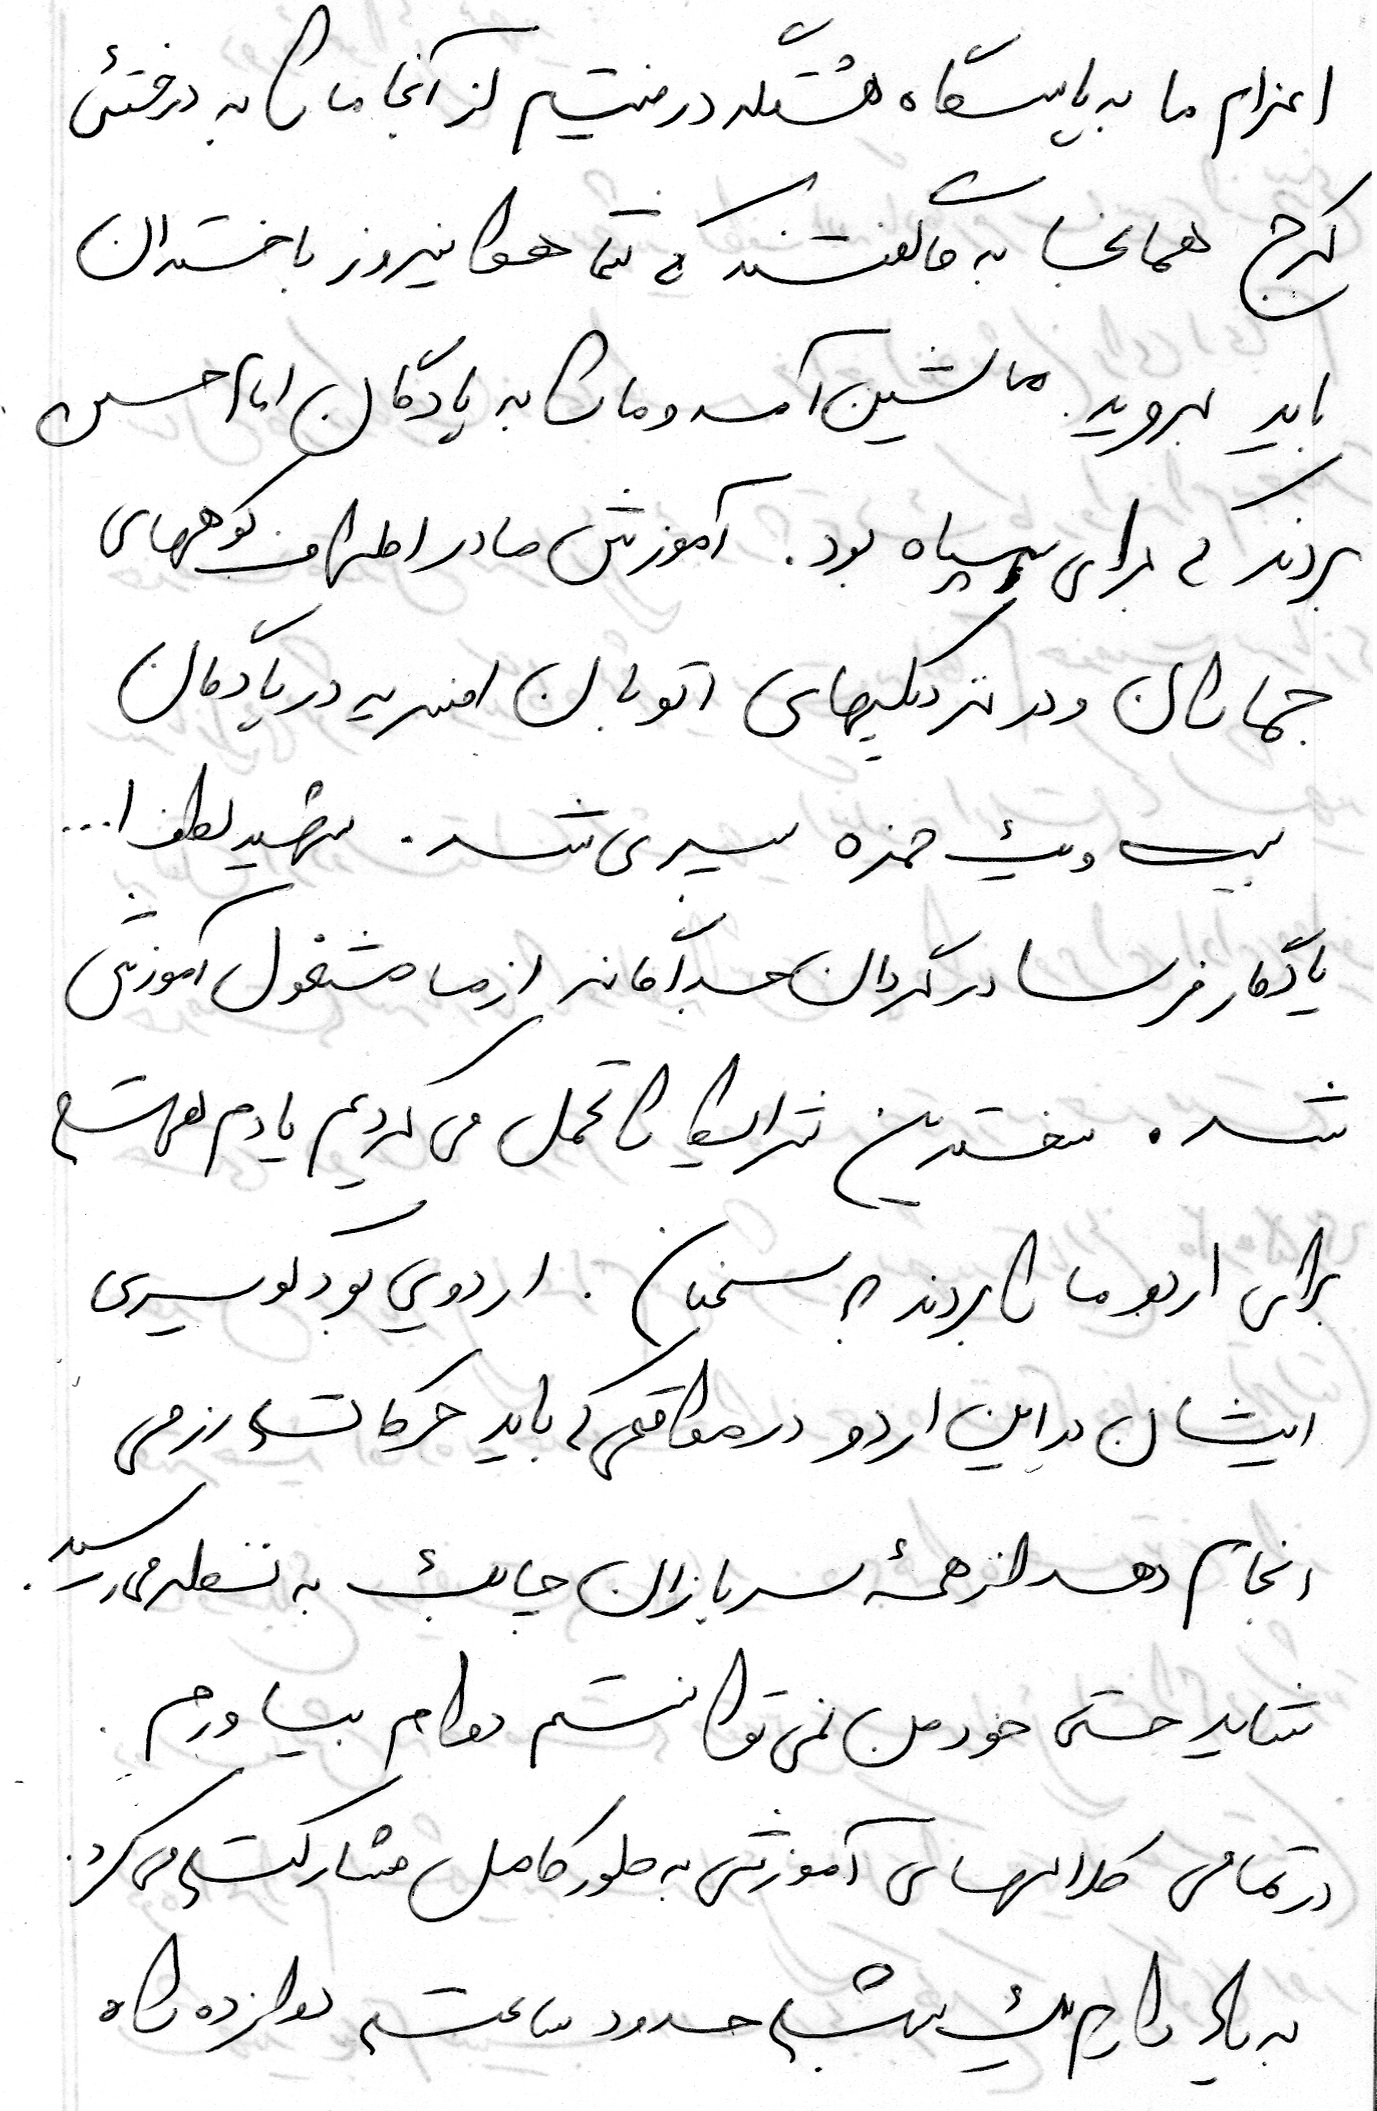 اعزام ما به پایگاه هشتگرد رفتیم از آنجا ما را به درختی
کرج همانجا به ما گفتند که شما هوانیروز باختران
باید بروید. ماشین آمد و ما را به پادگان امام حسین
بردند که برای سپاه بود. آموزش ما در اطراف کوههای
جماران و در نزدیکیهای اتوبان افسریه در پادگان
بیست و یک حمزه سپری شد. شهید لطف ا...
یادگار فرسا در گردان جداگانه از ما مشغول آموزش
شد. سخت‌ترین شرایط را تحمل می کردیم یادم هست
برای اردو ما را بردند به سمنان. اردوی کویر سیری
ایشان در این اردو در مواقعی که باید حرکات رزمی
انجام دهد از همهٔ سربازان چابک به نقطه می‌رسید.
شاید حتی خود من نمی توانستم دوام بیاورم.
در تمامی کلاسهای آموزشی به طور کامل مشارکت می کرد.
به یاد دارم یک شب حدود ساعت دوازده راه